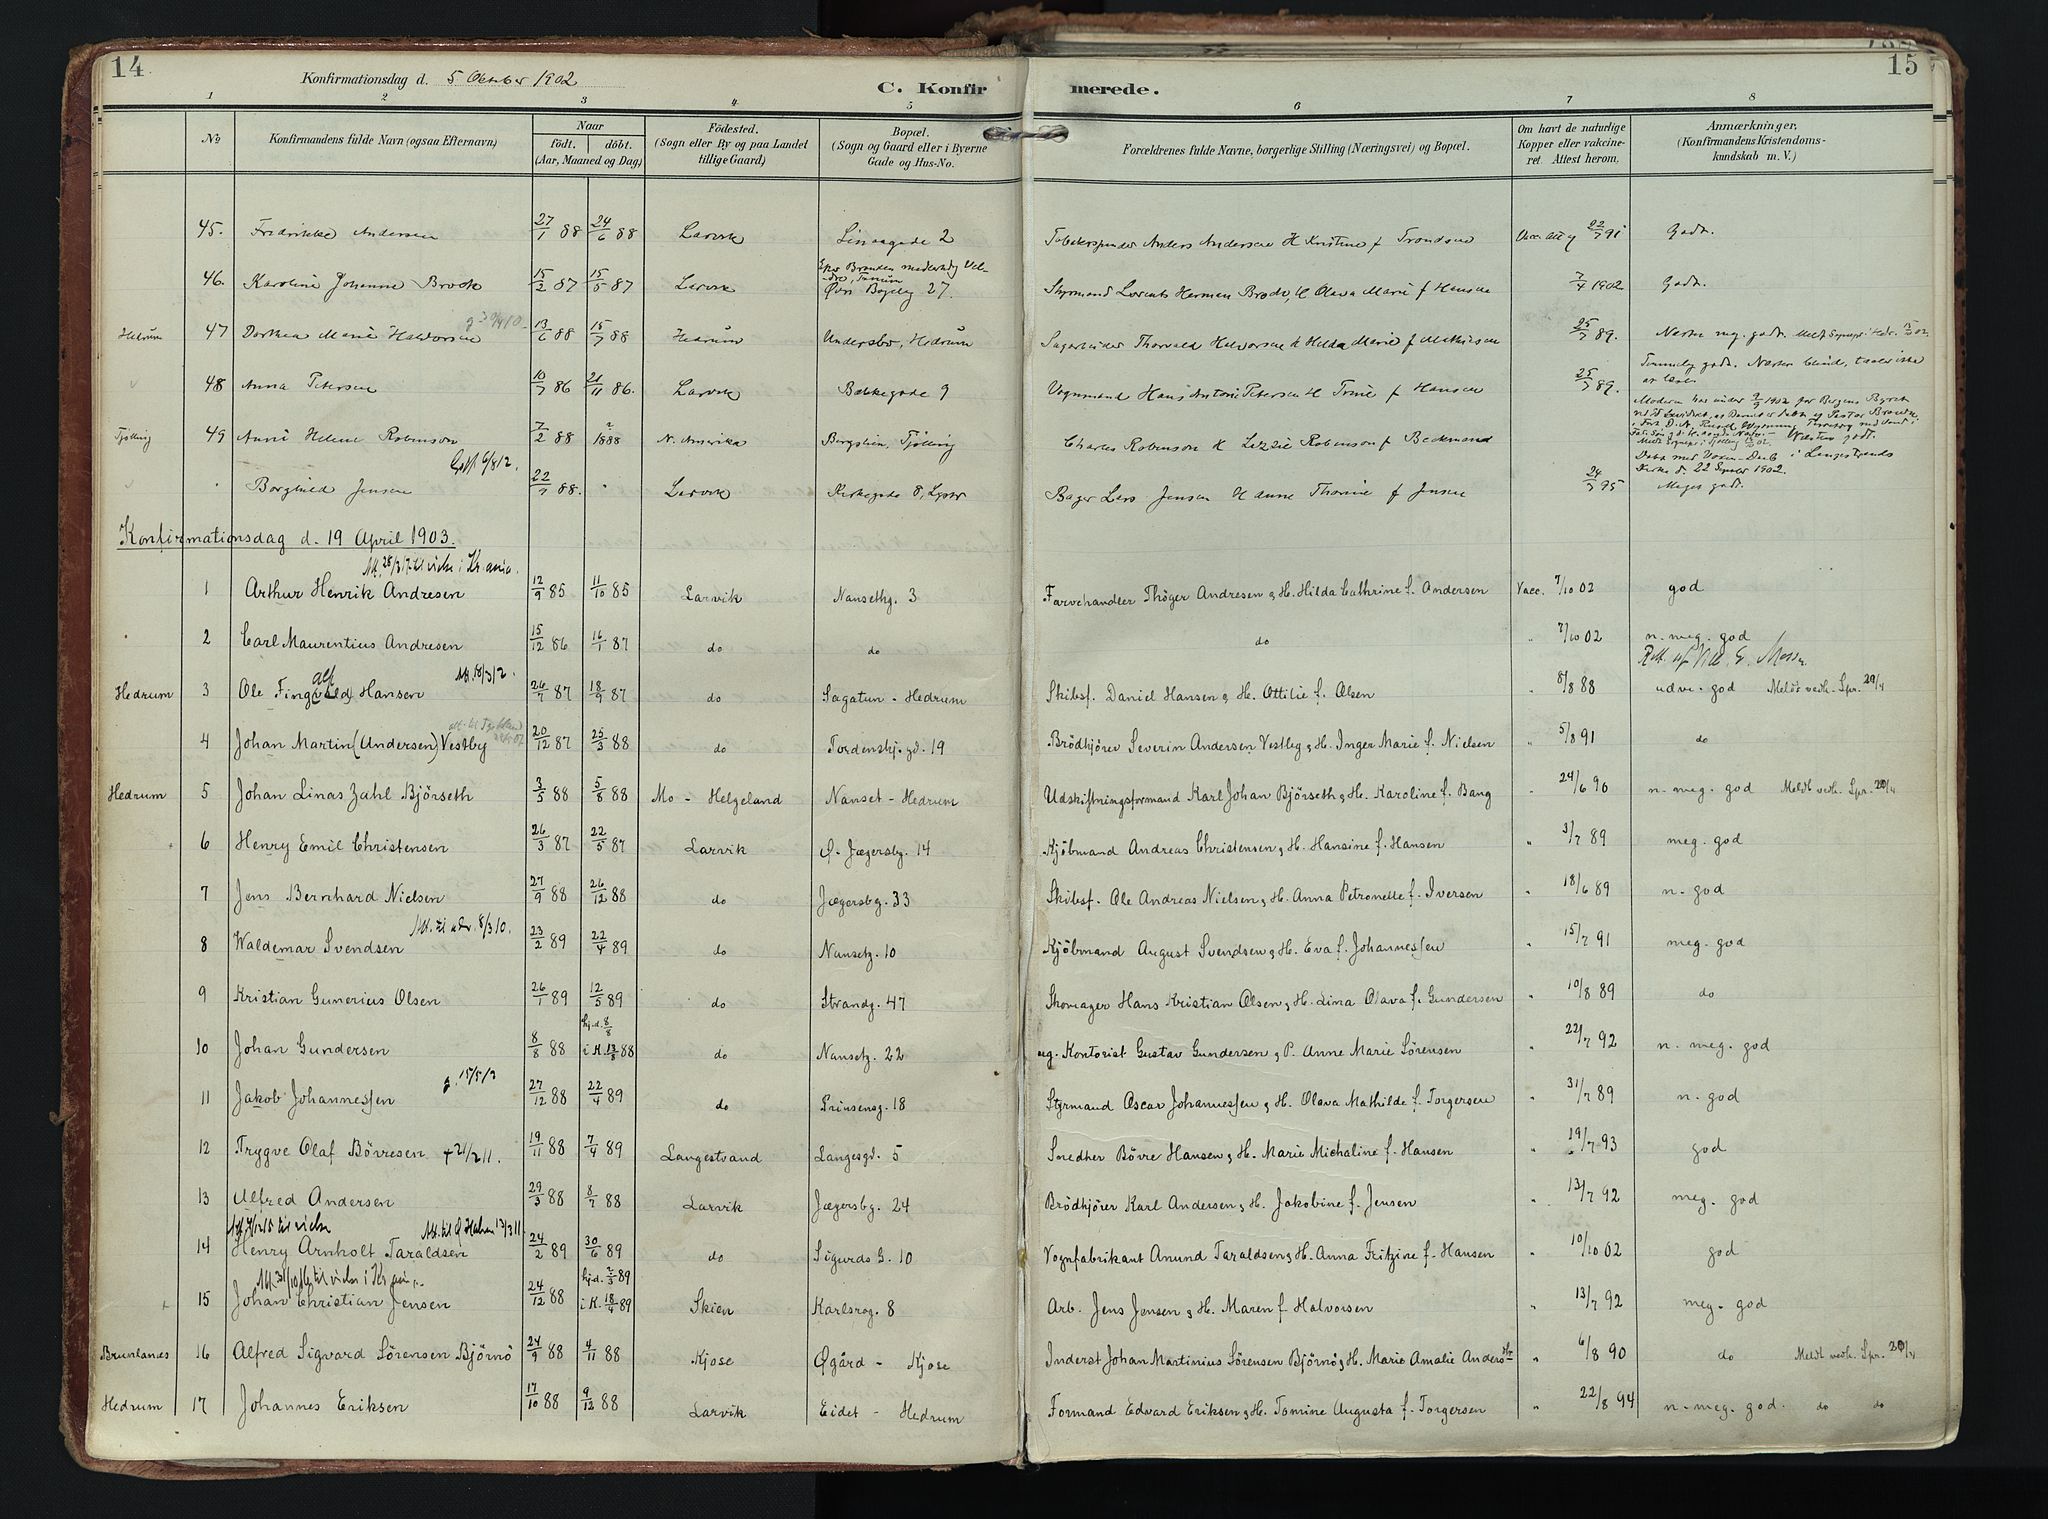 14
Konfirmationsdag d. 5 Oktober 1902
C. Konfirmerede.
15
1 2 3 4 5 6 7 8
No Konfirmandens fulde Navn (ogsaa Efternavn) Naar født. døbt. (Aar, Maaned og Dag) Fødested. (Sogn eller By og paa Landet tillige Gaard) Bopæl. (Sogn og Gaard eller i Byerne Gade og Hus-No. Forældrenes fulde Navne, borgerlige Stilling (Næringsvei) og Bopæl. Om havt de naturlige Kopper eller vakcineret. Attest herom. Anmærkninger. (Konfirmandens Kristendomskundskab m. V.)
45. Fredrikke Andersen 27/1 88 24/6 88 Larvik Linaagade 2 Tobakspinder Anders Andersen H Kristine f Trondsen 22/7 91 Godt.
46. Karoline Johanne Brock 15/2 87 15/5 87 Larvik Øvre Bøgelg 27. Styrmand Lorents Herman Brock, H Olava Marie f Hansen 7/4 1902 Godt.
Hedrum 47 Dorthea Marie Halvorsen 13/6 88 15/7 88 Hedrum Undersbo, Hedrum Sagarbeider Thorvald Halvorsen H Hilda Marie f Mathisen 25/7 89. Næsten meg. godt.
48 Anna Petersen 10/7 86 21/11 86. Larvik Bækkegade 9 Vognmand Hans Antoni Petersen H Trine f Hansen 25/7 89. Temmelig godt. Næsten blind, taaler ikke at læse.
Tjølling 49 Anni Helene Robinson 7/2 88 1888 N. Amerika Bergslien, Tjølling Charles Robinson H Lizzie Robinson f Beckmand Døbt med Voxen-Daab i Langestrands Kirke d. 22 Septbr 1902.
Borghild Jensen 22/7 88. Larvik Kirkegade 8, Bager Lars Jensen H Anne Thorine f Jensen 24/7 95 Meget godt.
Konfirmationsdag d. 19 April 1903.
1 Arthur Henrik Andresen 12/9 85 11/10 85 Larvik Nansethg. 3 Farvehandler Thöger Andresen & H. Hilda Cathrine f. Andersen Vacc. 7/10 02 god
2 Carl Maurentius Andresen 15/12 86 16/1 87 do do do " 7/10 02 n. meg. god
Hedrum 3 Ole Fingvald Hansen 26/7 87 18/9 87 do Sagatun - Hedrum Skibsf. Daniel Hansen & H. Ottilie f. Olsen " 8/8 88 udm. god Meldt vedk. Spr. 20/4
4 Johan Martin (Andersen) Vestby 20/12 87 25/3 88 do Tordenskj. gd. 19 Brödkjörer Severin Andersen Vestby & H. Inger Marie f. Nielsen " 5/8 91 do
Hedrum 5 Johan Linas Zahl Björseth 3/5 88 5/8 88 Mo - Helgeland Nanset - Hedrum Udskiftningsformand Karl Johan Björseth & H. Karoline f. Bang " 24/6 90 n. meg. god Meldt vedk. Spr. 20/4
6 Henry Emil Christensen 26/3 87 22/5 87 Larvik Ö. Jægersbg. 14 Kjöbmand Andreas Christensen & H. Hansine f. Hansen " 3/7 89 meg. god
7 Jens Bernhard Nielsen 27/9 88 26/12 88 do Jægersbg. 33 Skibsf. Ole Andreas Nielsen & H. Anna Petronelle f. Iversen " 18/6 89 n. god
8 Waldemar Svendsen 23/2 89 22/4 89 do Nansetg. 10 Kjöbmand August Svendsen & H. Eva f. Johannessen " 15/7 91 meg. god
9 Kristian Gunerius Olsen 26/1 89 12/5 89 do Strandg. 47 Skomager Hans Kristian Olsen & H. Lina Olava f. Gundersen " 10/8 89 do
10 Johan Gundersen 8/8 88 hj.d. 8/8 i K. 13/8 88 do Nansetg. 22 ug. Kontorist Gustav Gundersen & P. Anne Marie Sörensen " 22/7 92 n. meg. god
11 Jakob Johannessen 27/12 88 22/4 89 do Prinsensg. 18 Styrmand Oscar Johannessen & H. Olava Mathilde f. Torgersen " 31/7 89 n. god
12 Trygve Olaf Bövresen + 21/2 11. 19/11 88 7/4 89 Langestrand Langesgd. 5 Snedker Bövre Hansen & H. Marie Michaline f. Hansen " 19/7 93 god
13 Alfred Andersen 29/3 88 8/7 88 Larvik Jægersbg. 24 Brödkjörer Karl Andersen & H. Jakobine f. Jensen " 13/7 92 meg. god
14 Henry Arnholt Taraldsen 24/2 89 30/6 89 do Sigurds G. 10 Vognfabrikant Anund Taraldsen & H. Anna Fritzine f. Hansen " 10/10 02 god
15 Johan Christian Jensen 24/12 88 hj.d. 2/3 89 i K. 18/4 89 Skien Karlsrog. 8 Arb. Jens Jensen & H. Maren f. Halvorsen " 13/7 92 meg. god
Brunlanæs 16 Alfred Sigvard Sörensen Björnö 24/9 88 4/11 88 Kjose Øgård - Kjose Inderst Johan Martinius Sörensen Björnö & H. Marie Amalie Anders Hr " 6/8 90 do Meldt vedk. Spr. 20/4
Hedrum 17 Johannes Eriksen 17/10 88 9/12 88 Larvik Eidet - Hedrum Formand Edvard Eriksen & H. Tomine Augusta f. Torgersen " 22/8 94 n. meg. god. do do